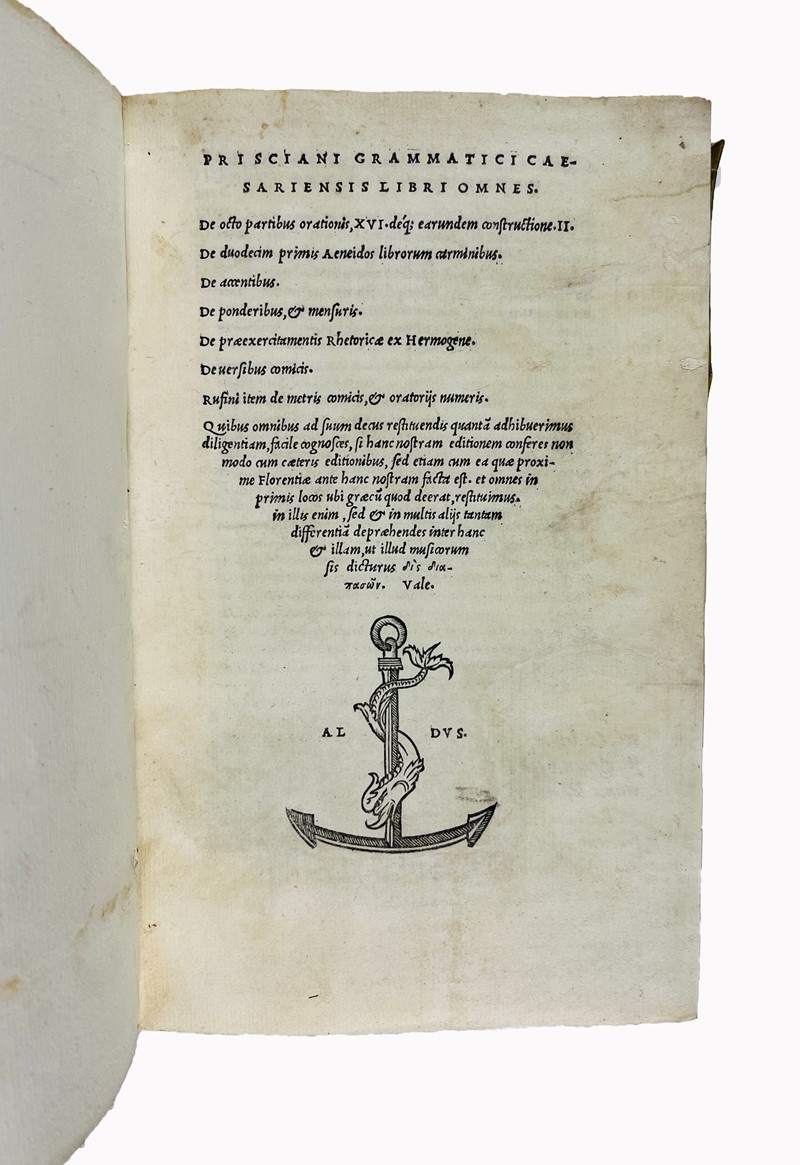 PRISCIANI GRAMMATICI CAE-
SARIENSIS LIBRI OMNES.
De octo partibus orationis, XVI. déq; earundem constructione. II.
De duodecim primis Aeneidos librorum carminibus.
De accentibus.
De ponderibus, & mensuris.
De præexercitamentis Rhetoricæ ex Hermogene.
De uersibus comicis.
Rufini item de metris comicis, & oratorijs numeris.
Quibus omnibus ad suum decus restituendis quantã adhibuerimus
diligentiam, facile cognosces, si hanc nostram editionem conferes non
modo cum cæteris editionibus, sed etiam cum ea quæ proxi-
me Florentiæ ante hanc nostram facta est. et omnes in
primis locos ubi græcũ quod deerat, restituimus.
in illis enim, sed & in multis alijs tantam
differentiã depræhendes inter hanc
& illam, ut illud musicorum
sis dicturus δὶς δια-
πασῶν. Vale.
AL DVS.